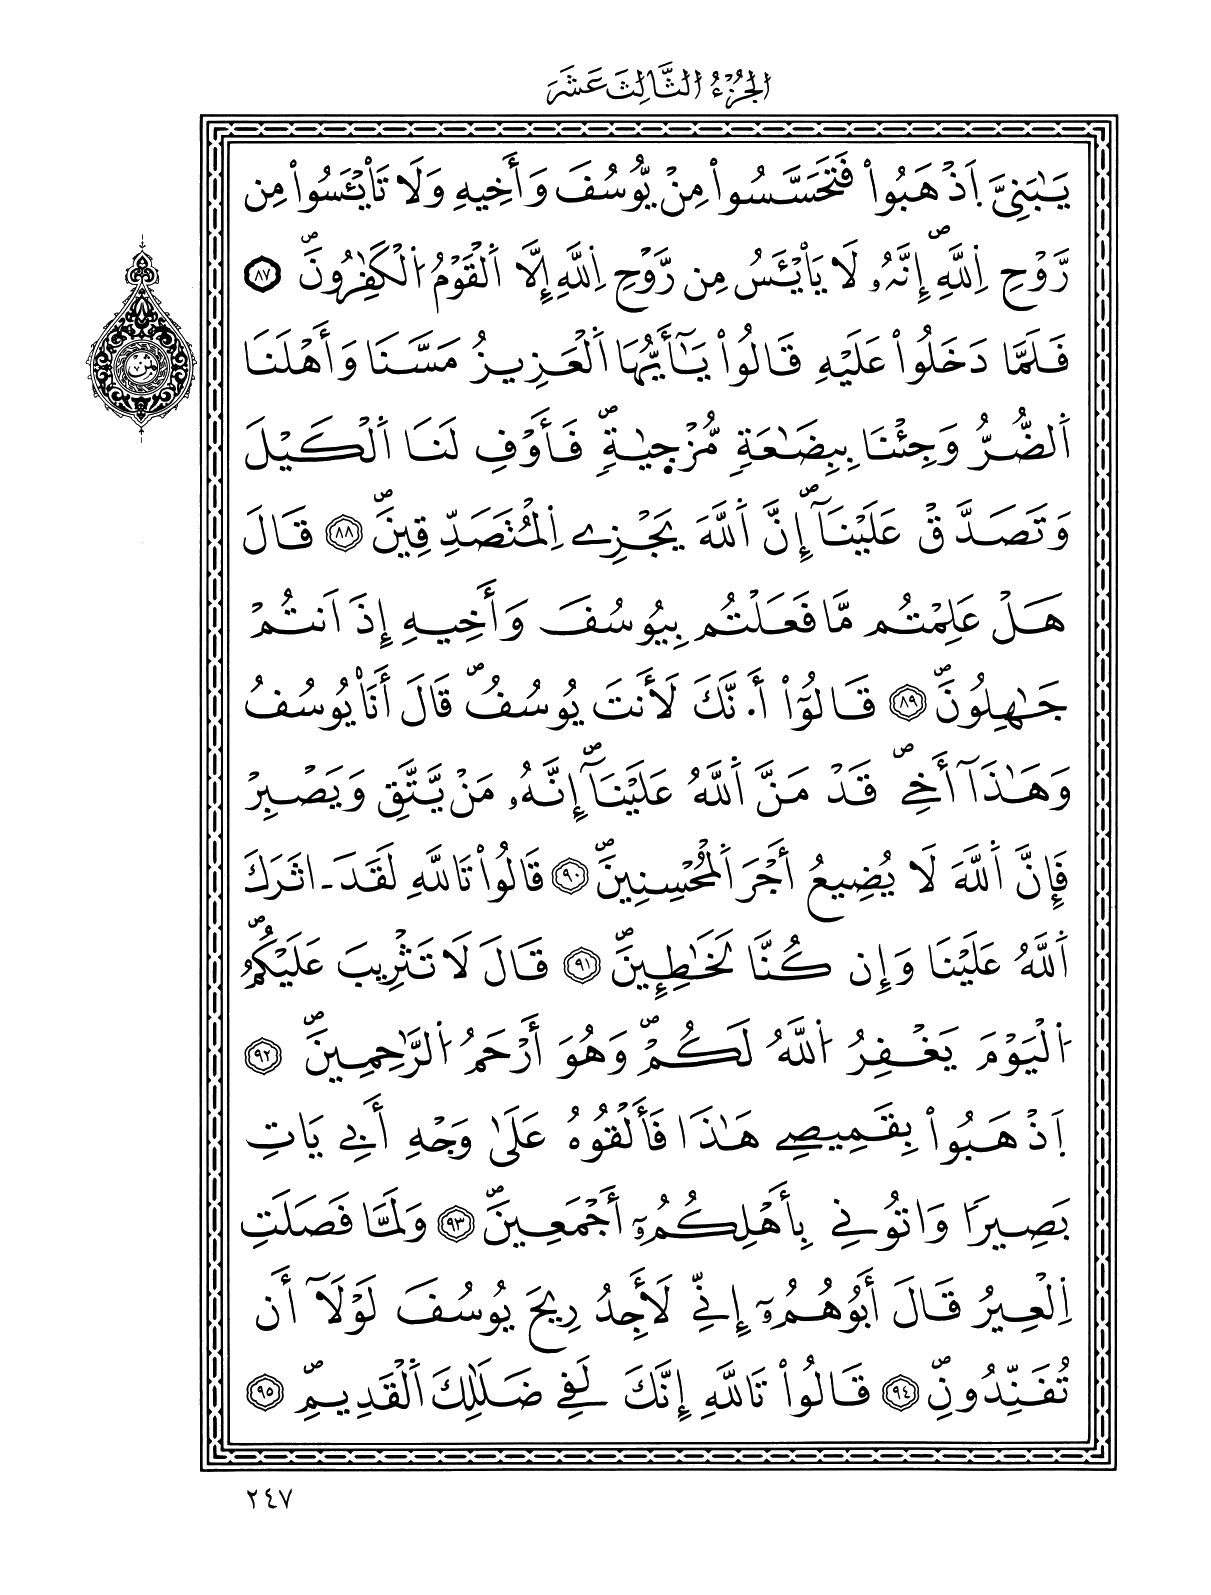 الجُزْءُ الثَّالِثَ عَشَرَ
يَٰبَنِيَّ اَ۪ذْهَبُواْ فَتَحَسَّسُواْ مِنْ يُّوسُفَ وَأَخِيهِ وَلَا تَاْيْـَٔسُواْ مِن
رَّوْحِ اِ۬للَّهِۖ إِنَّهُۥ لَا يَاْيْـَٔسُ مِن رَّوْحِ اِ۬للَّهِ إِلَّا اَ۬لْقَوْمُ اُ۬لْكَٰفِرُونَۖ ٨٧
فَلَمَّا دَخَلُواْ عَلَيْهِ قَالُواْ يَٰٓأَيُّهَا اَ۬لْعَزِيزُ مَسَّنَا وَأَهْلَنَا
اَ۬لضُّرُّ وَجِئْنَا بِبِضَٰعَةٖ مُّزْج۪يٰةٖۖ فَأَوْفِ لَنَا اَ۬لْكَيْلَ
وَتَصَدَّقْ عَلَيْنَآۖ إِنَّ اَ۬للَّهَ يَجْزِے اِ۬لْمُتَصَدِّقِينَۖ ٨٨ قَالَ
هَلْ عَلِمْتُم مَّا فَعَلْتُم بِيُوسُفَ وَأَخِيهِ إِذَ اَنتُمْ
جَٰهِلُونَۖ ٨٩ قَالُوٓاْ أَ.نَّكَ لَأَنتَ يُوسُفُۖ قَالَ أَنَا۠ يُوسُفُ
وَهَٰذَآ أَخِےۖ قَدْ مَنَّ اَ۬للَّهُ عَلَيْنَآۖ إِنَّهُۥ مَنْ يَّتَّقِ وَيَصْبِرْ
فَإِنَّ اَ۬للَّهَ لَا يُضِيعُ أَجْرَ اَ۬لْمُحْسِنِينَۖ ٩٠ قَالُواْ تَاللَّهِ لَقَدَ ـ اثَرَكَ
اَ۬للَّهُ عَلَيْنَا وَإِن كُنَّا لَخَٰطِـِٕينَۖ ٩١ قَالَ لَا تَثْرِيبَ عَلَيْكُمُۖ
اُ۬لْيَوْمَ يَغْفِرُ اُ۬للَّهُ لَكُمْۖ وَهُوَ أَرْحَمُ اُ۬لرَّٰحِمِينَۖ ٩٢
اَ۪ذْهَبُواْ بِقَمِيصِے هَٰذَا فَأَلْقُوهُ عَلَىٰ وَجْهِ أَبِے يَاتِ
بَصِيراٗ وَاتُونِے بِأَهْلِكُمُۥٓ أَجْمَعِينَۖ ٩٣ وَلَمَّا فَصَلَتِ
اِ۬لْعِيرُ قَالَ أَبُوهُمُۥٓ إِنِّے لَأَجِدُ رِيحَ يُوسُفَ لَوْلَآ أَن
تُفَنِّدُونِۖ ٩٤ قَالُواْ تَاللَّهِ إِنَّكَ لَفِے ضَلَٰلِكَ اَ۬لْقَدِيمِۖ ٩٥
ثمن
٢٤٧